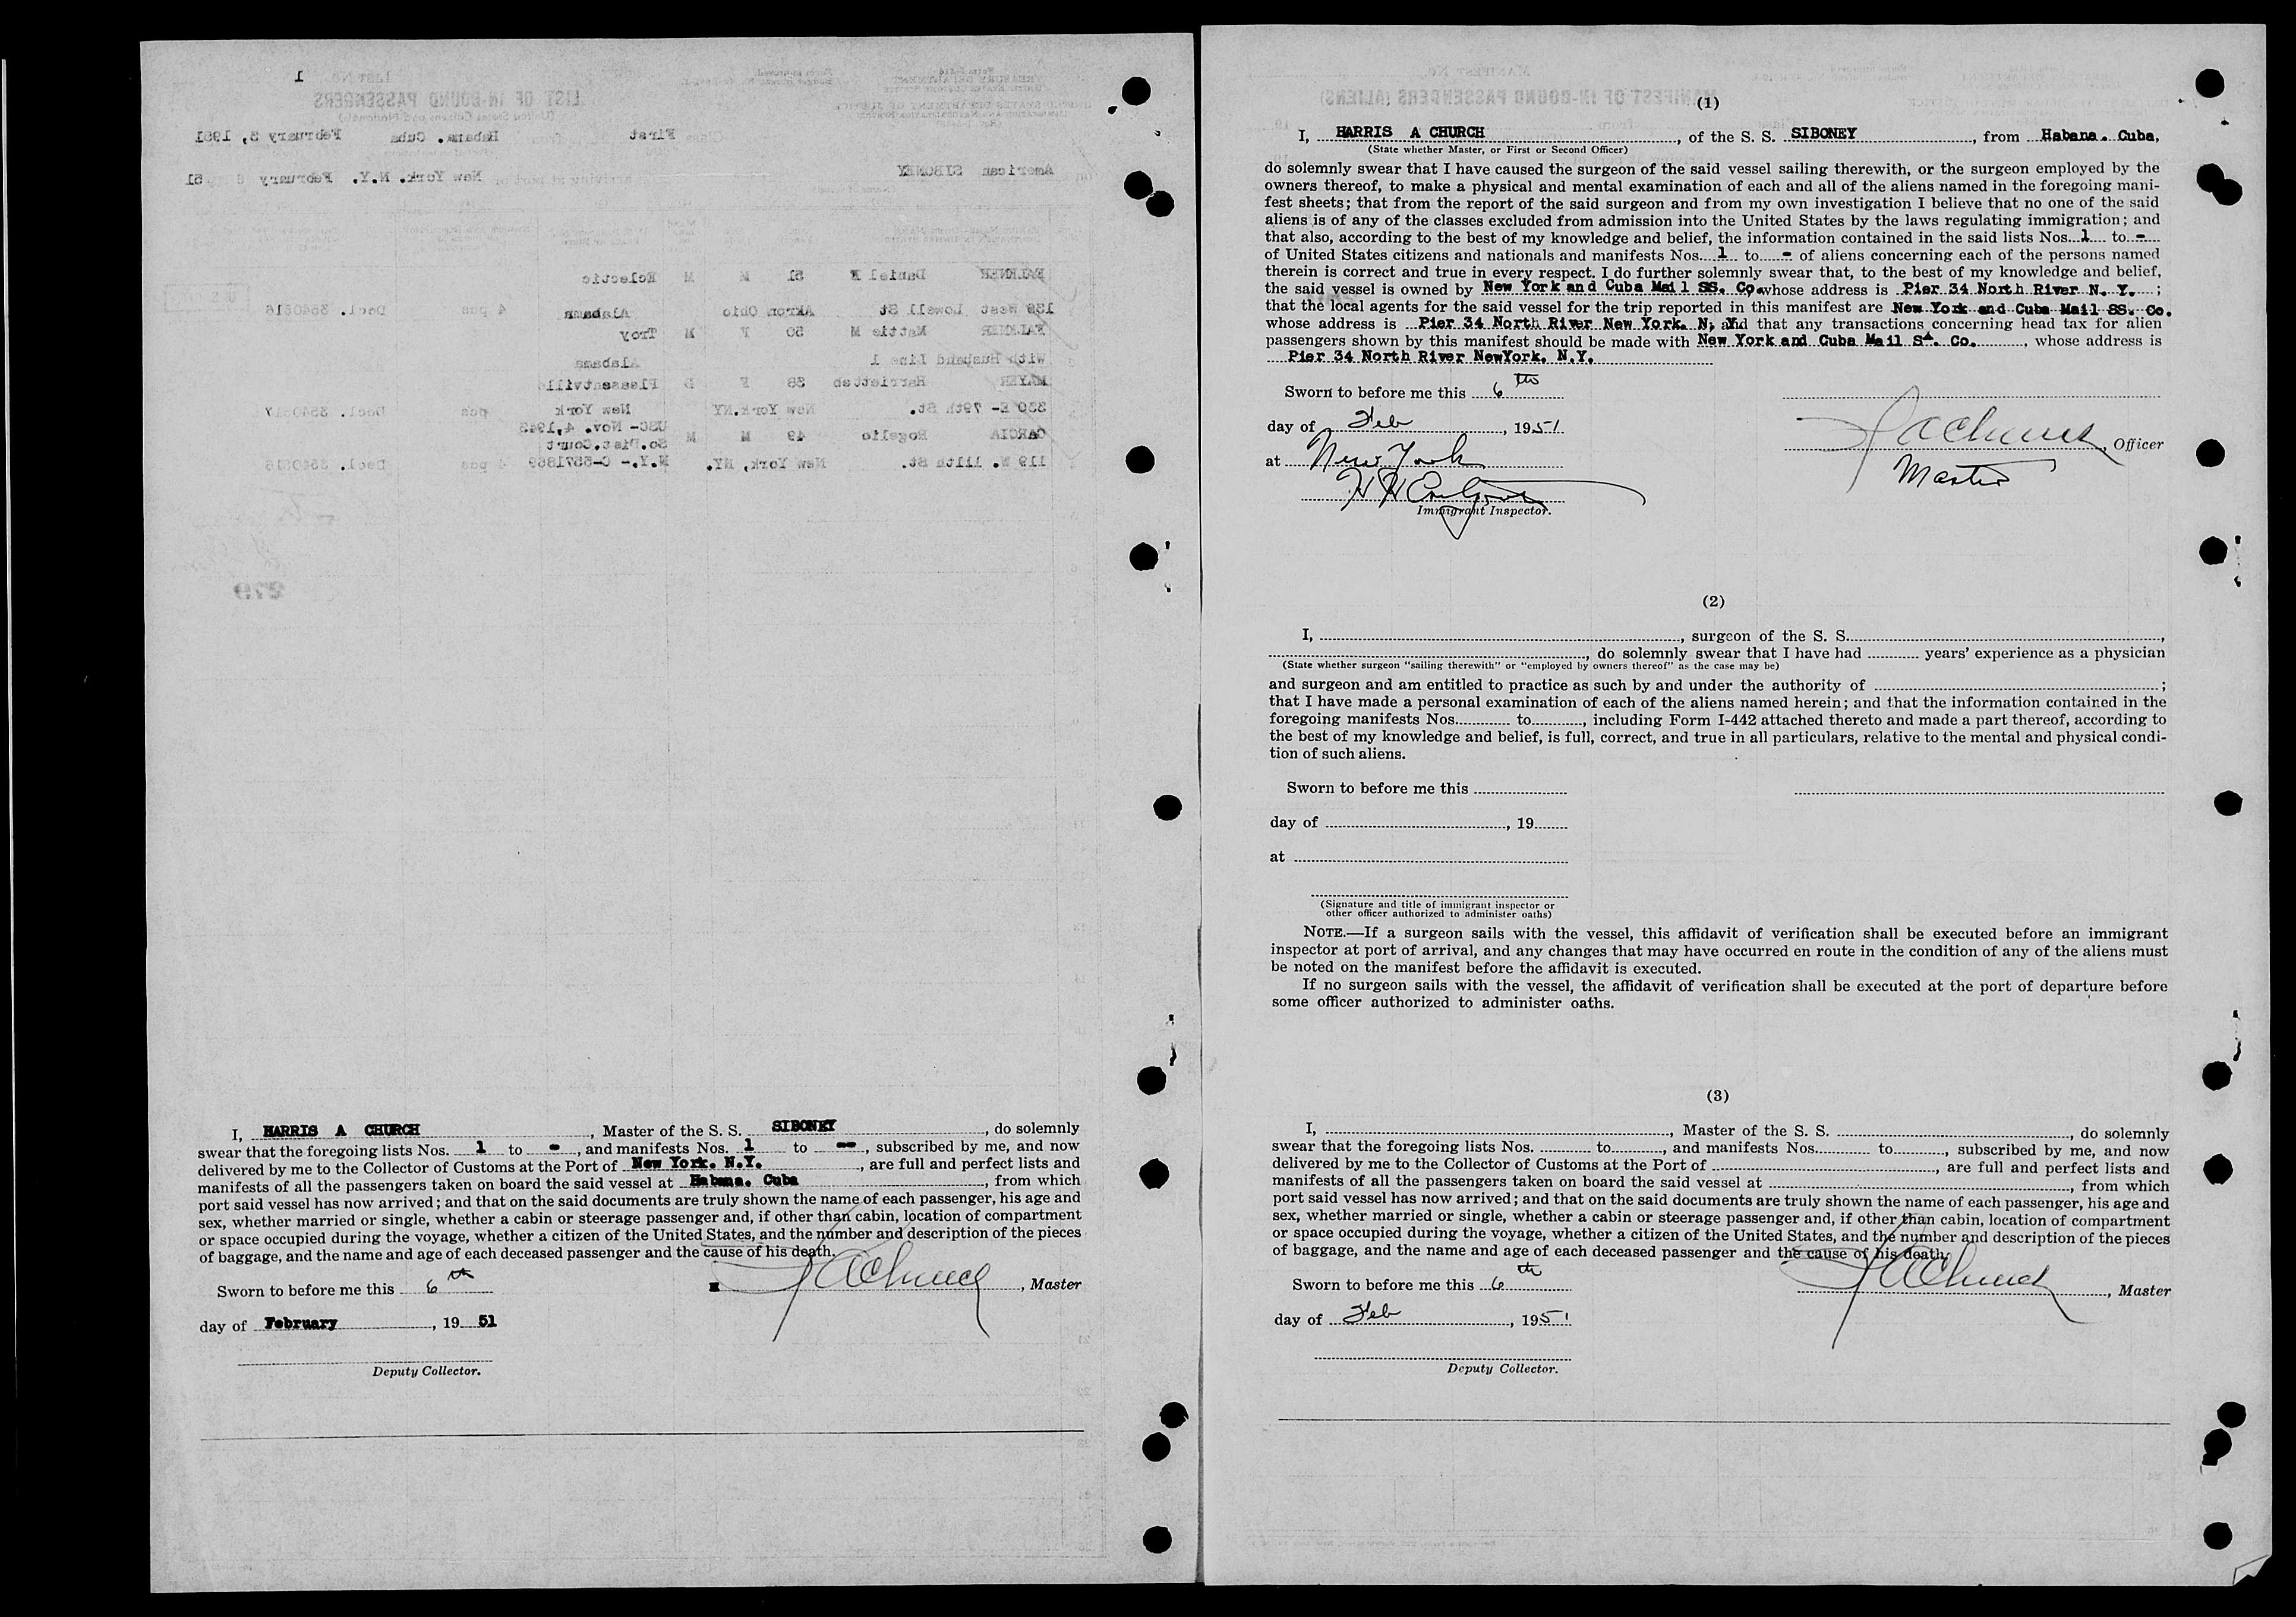 1
LIST OF IN-BOUND PASSENGERS
(United States Citizens and Nationals)
First
Habana. Cuba
February 3, 1951
American SIBONEY
New York. N.Y. February
51
FALKNER Daniel 51 M M Eclectic
139 West Lowell St Akron Ohio Alabama 4 pcs Decl.
FALKNER Mattie M 50 F M Troy
With Husband Line 1 Alabama
MAYER Harriettah 38 F Pleasantville
330 E- 79th St. New York.NY New York pcs Decl.
GARCIA Rogelio 49 M M USC- Nov. 4,1943
So.Dist.Court
119 W. 111th St. New York, NY. N.Y.- pcs Decl.
279
I, HARRIS A CHURCH, Master of the S. S. SIBONEY, do solemnly
swear that the foregoing lists Nos. 1 to -, and manifests Nos. 1 to --, subscribed by me, and now
delivered by me to the Collector of Customs at the Port of New York. N.Y., are full and perfect lists and
manifests of all the passengers taken on board the said vessel at Habana. Cuba, from which
port said vessel has now arrived; and that on the said documents are truly shown the name of each passenger, his age and
sex, whether married or single, whether a cabin or steerage passenger and, if other than cabin, location of compartment
or space occupied during the voyage, whether a citizen of the United States, and the number and description of the pieces
of baggage, and the name and age of each deceased passenger and the cause of his death.
Sworn to before me this 6th
HAChurch, Master
day of February, 19 51
Deputy Collector.
MANIFEST NO.
MANIFEST OF IN-BOUND PASSENGERS (ALIENS)
(1)
I, HARRIS A CHURCH, of the S. S. SIBONEY, from Habana. Cuba,
(State whether Master, or First or Second Officer)
do solemnly swear that I have caused the surgeon of the said vessel sailing therewith, or the surgeon employed by the
owners thereof, to make a physical and mental examination of each and all of the aliens named in the foregoing mani-
fest sheets; that from the report of the said surgeon and from my own investigation I believe that no one of the said
aliens is of any of the classes excluded from admission into the United States by the laws regulating immigration; and
that also, according to the best of my knowledge and belief, the information contained in the said lists Nos. 1 to -
of United States citizens and nationals and manifests Nos. 1 to - of aliens concerning each of the persons named
therein is correct and true in every respect. I do further solemnly swear that, to the best of my knowledge and belief,
the said vessel is owned by New York and Cuba Mail SS. Co. whose address is Pier 34 North River N. Y. ;
that the local agents for the said vessel for the trip reported in this manifest are New York and Cuba Mail SS. Co.
whose address is Pier 34 North River New York. N. Y. and that any transactions concerning head tax for alien
passengers shown by this manifest should be made with New York and Cuba Mail SS. Co., whose address is
Pier 34 North River NewYork. N.Y.
Sworn to before me this 6th
day of Feb, 1951
HAChurch, Officer
at New York
Master
Immigrant Inspector.
(2)
I, , surgeon of the S. S. ,
, do solemnly swear that I have had years' experience as a physician
(State whether surgeon "sailing therewith" or "employed by owners thereof" as the case may be)
and surgeon and am entitled to practice as such by and under the authority of ;
that I have made a personal examination of each of the aliens named herein; and that the information contained in the
foregoing manifests Nos. to , including Form I-442 attached thereto and made a part thereof, according to
the best of my knowledge and belief, is full, correct, and true in all particulars, relative to the mental and physical condi-
tion of such aliens.
Sworn to before me this
day of , 19
at
(Signature and title of immigrant inspector or
other officer authorized to administer oaths)
NOTE.—If a surgeon sails with the vessel, this affidavit of verification shall be executed before an immigrant
inspector at port of arrival, and any changes that may have occurred en route in the condition of any of the aliens must
be noted on the manifest before the affidavit is executed.
If no surgeon sails with the vessel, the affidavit of verification shall be executed at the port of departure before
some officer authorized to administer oaths.
(3)
I, , Master of the S. S. , do solemnly
swear that the foregoing lists Nos. to , and manifests Nos. to , subscribed by me, and now
delivered by me to the Collector of Customs at the Port of , are full and perfect lists and
manifests of all the passengers taken on board the said vessel at , from which
port said vessel has now arrived; and that on the said documents are truly shown the name of each passenger, his age and
sex, whether married or single, whether a cabin or steerage passenger and, if other than cabin, location of compartment
or space occupied during the voyage, whether a citizen of the United States, and the number and description of the pieces
of baggage, and the name and age of each deceased passenger and the cause of his death.
Sworn to before me this 6th
HAChurch, Master
day of Feb, 1951
Deputy Collector.